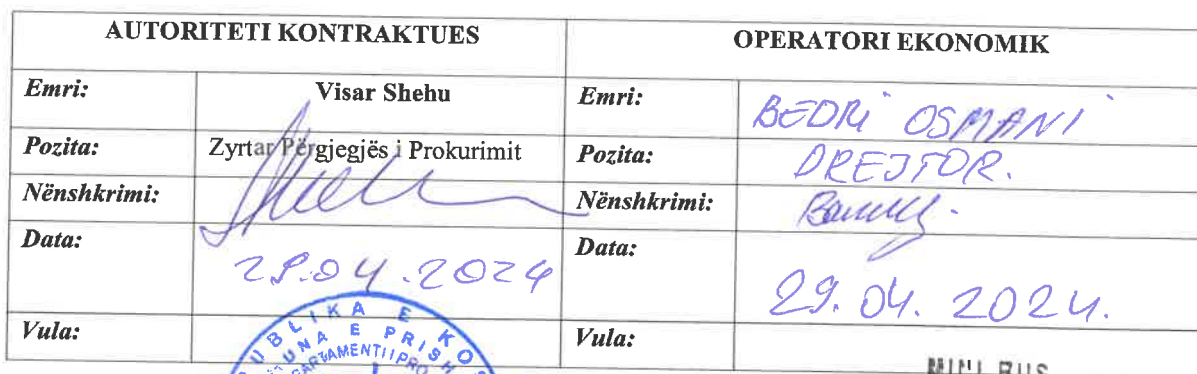 AUTORITETI KONTRAKTUES OPERATORI EKONOMIK
Emri: Visar Shehu Emri: BEDRI OSMANI
Pozita: Zyrtar Përgjegjës i Prokurimit Pozita: DREJTOR.
Nënshkrimi: Nënshkrimi:
Data: 29.04.2024 Data: 29.04.2024.
Vula: Vula:
MINI BUS